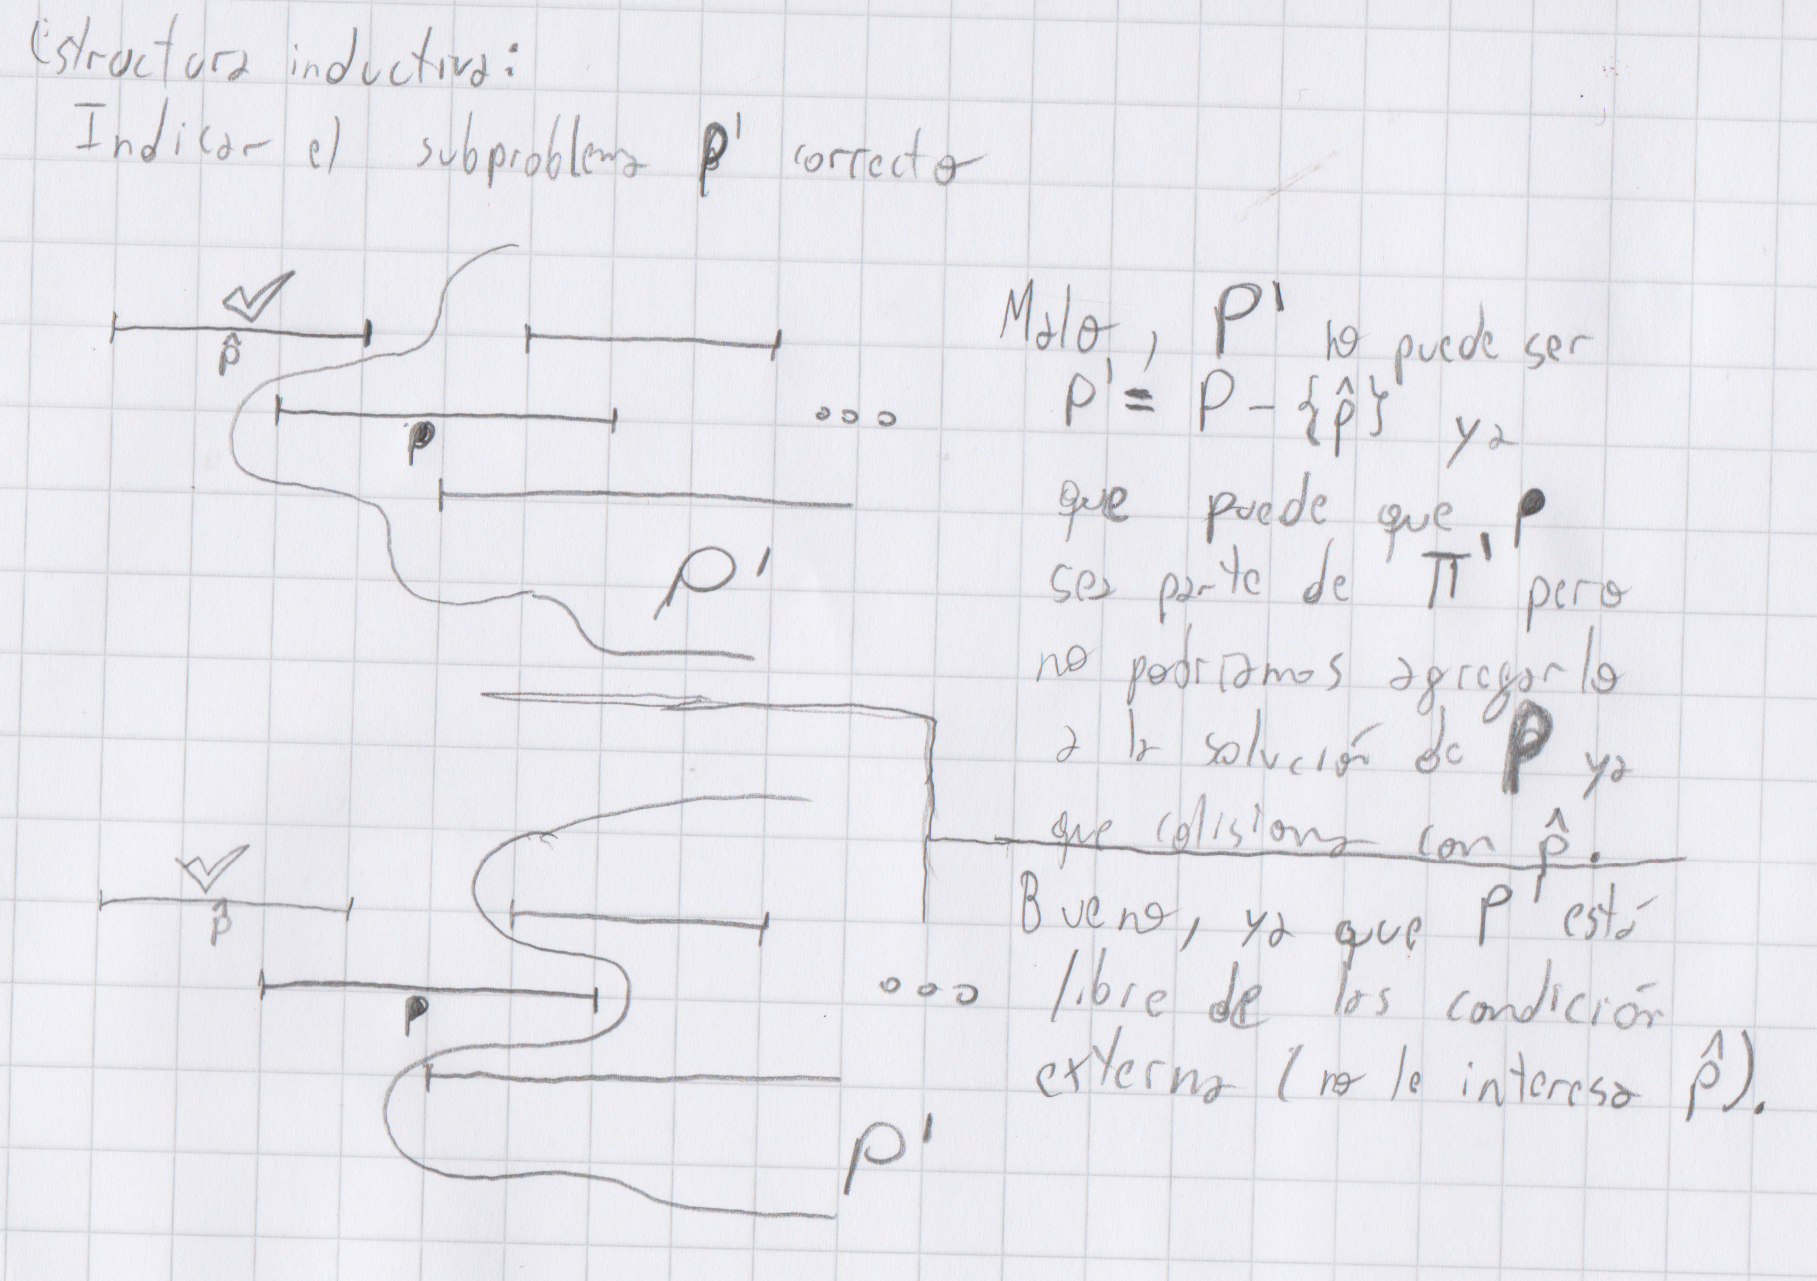 Estructura inductiva:
Indicar el subproblema P' correcto
p̂
p
ooo
P'
Malo, P' no puede ser
P' = P - {p̂} ya
que puede que p
sea parte de Π' pero
no podríamos agregarlo
a la solución de P ya
que colisiona con p̂.
p̂
p
ooo
P'
Bueno, ya que P' está
libre de las condición
externa (no le interesa p̂).